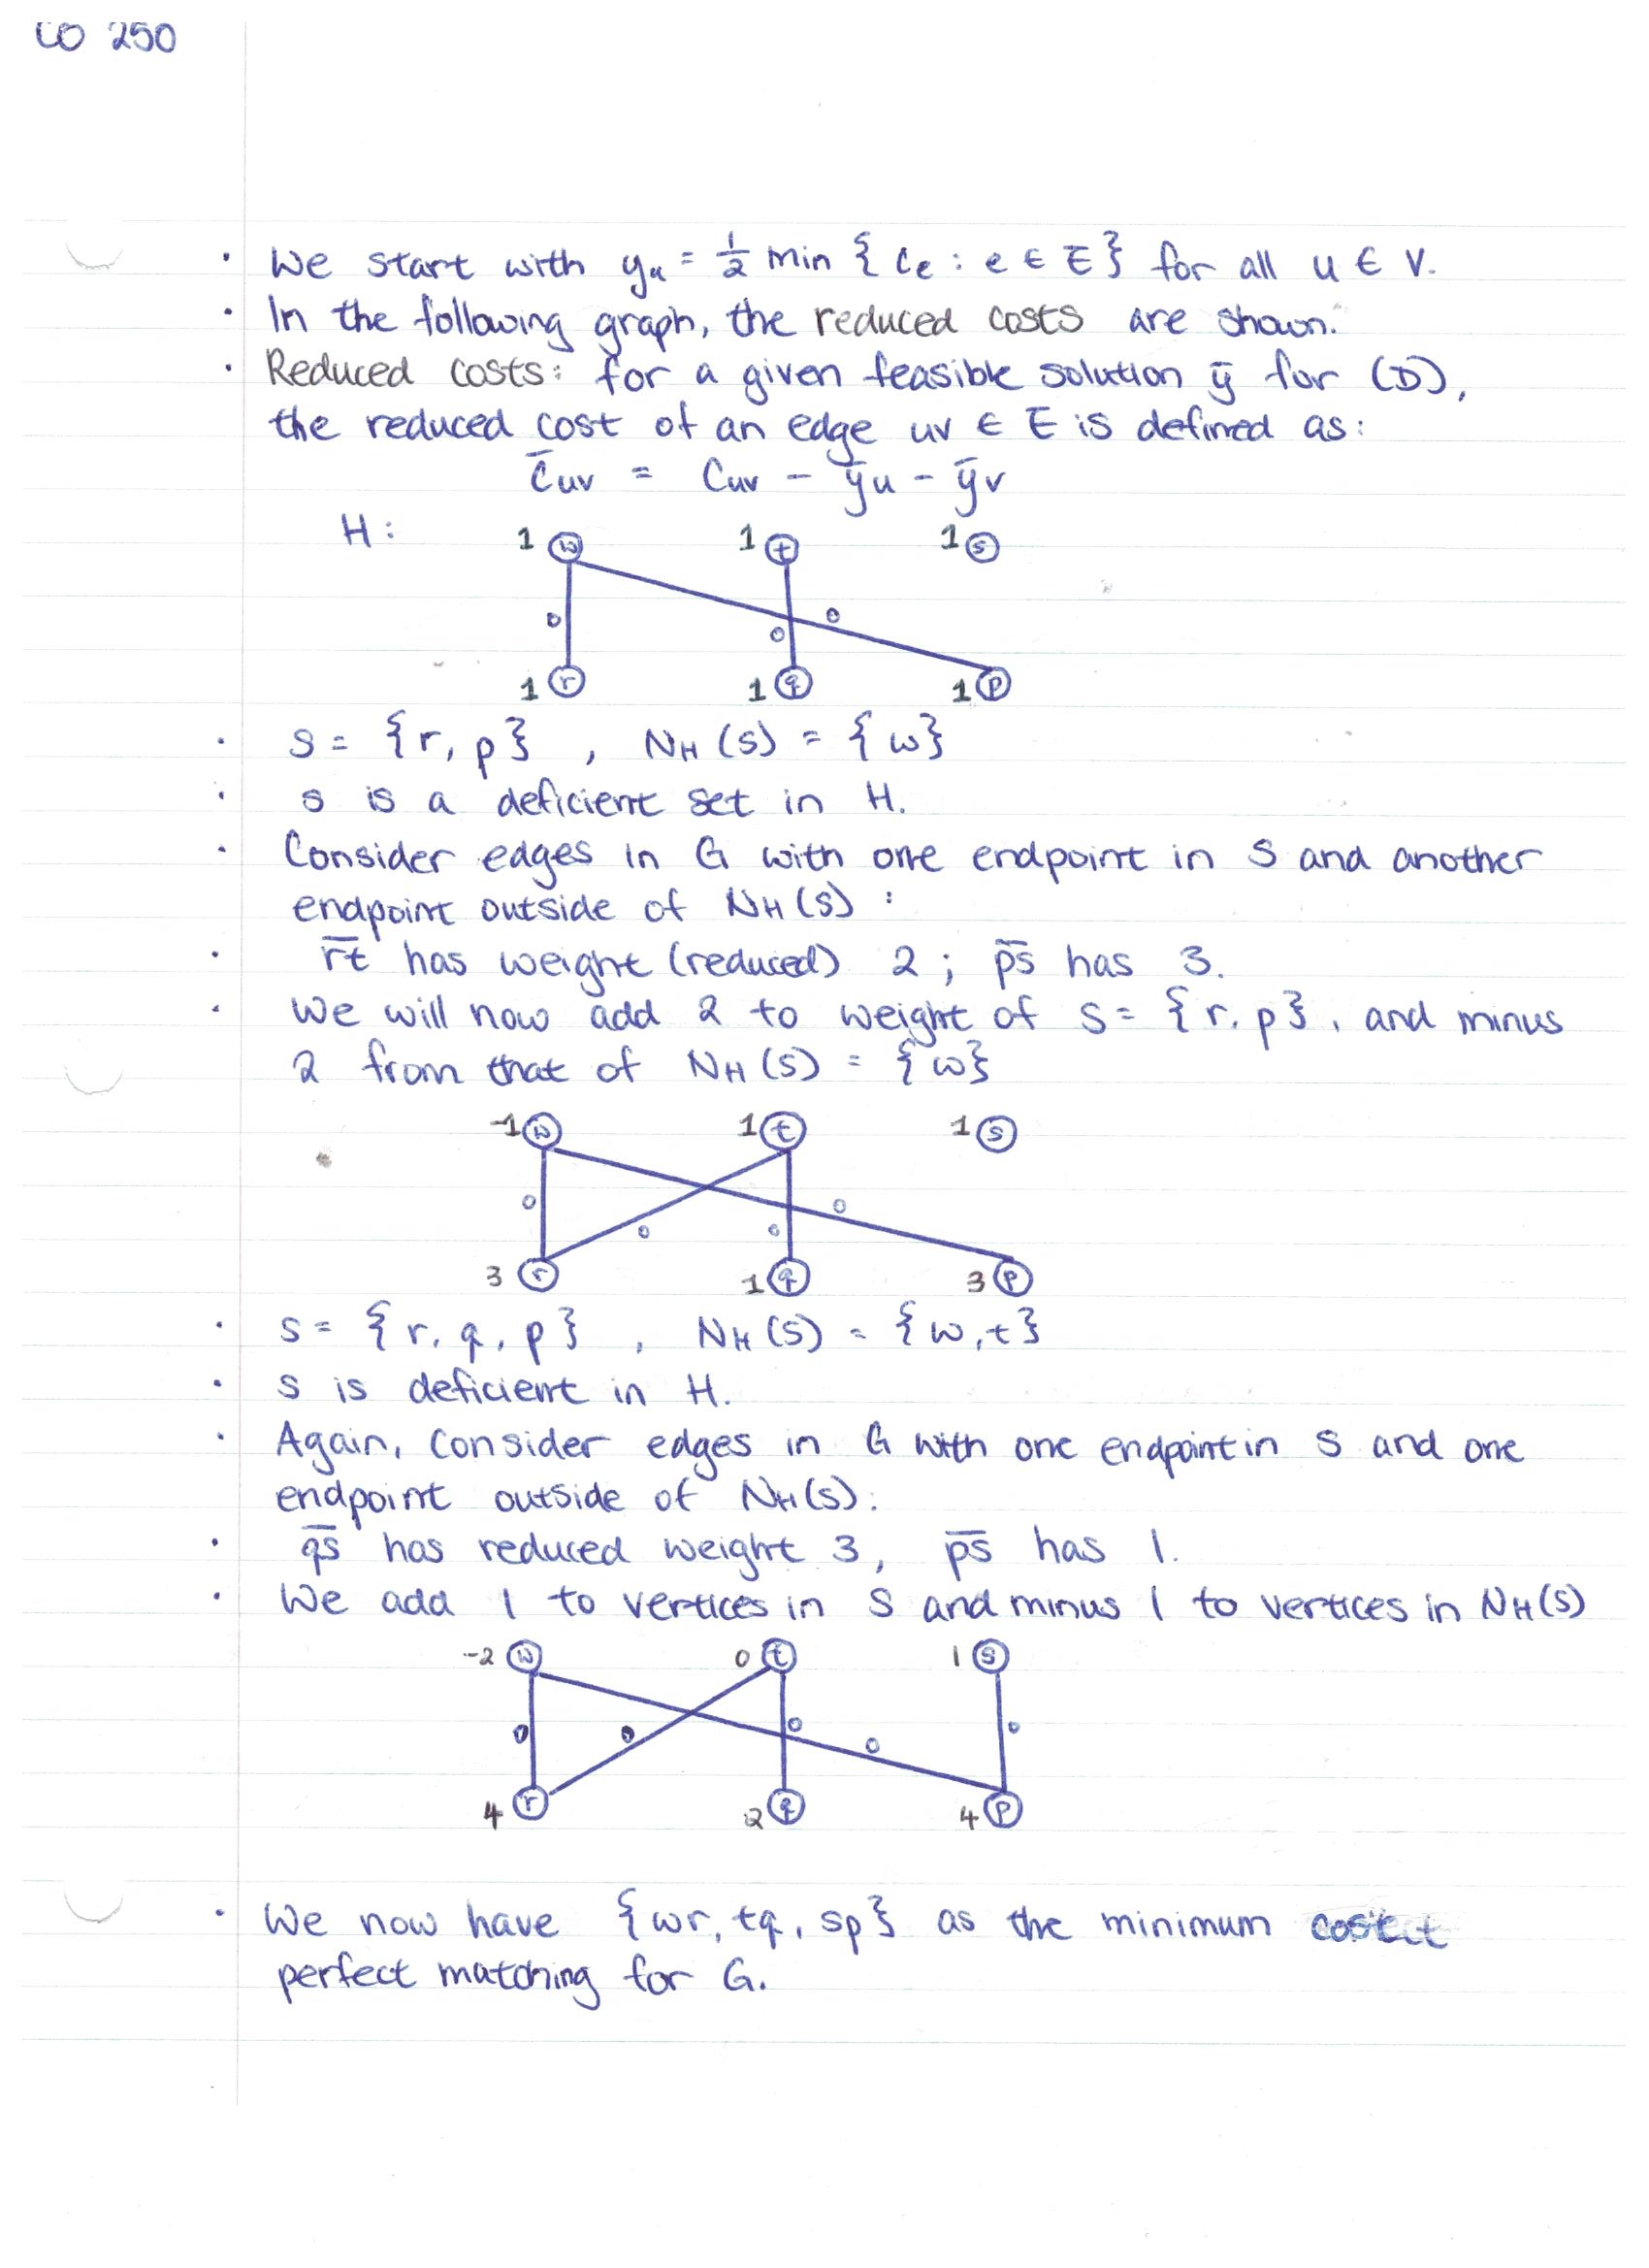 CO 250
· We start with yᵤ = ½ min { cₑ : e ∈ E } for all u ∈ V.
· In the following graph, the reduced costs are shown.
· Reduced costs: for a given feasible solution ȳ for (D),
the reduced cost of an edge uv ∈ E is defined as:
c̄uv = Cuv - ȳu - ȳv
H:
1 w 1 t 1 s
0 0 0
1 r 1 q 1 p
· S = {r, p} , NH (S) = {w}
· S is a deficient set in H.
· Consider edges in G with one endpoint in S and another
endpoint outside of NH (S) :
· r̅t̅ has weight (reduced) 2 ; p̅s̅ has 3.
· We will now add 2 to weight of S = {r, p}, and minus
2 from that of NH (S) = {w}
-1 w 1 t 1 s
0 0 0 0
3 r 1 q 3 p
· S = {r, q, p} , NH (S) = {w, t}
· S is deficient in H.
· Again, consider edges in G with one endpoint in S and one
endpoint outside of NH (S).
· q̅s̅ has reduced weight 3, p̅s̅ has 1.
· We add 1 to vertices in S and minus 1 to vertices in NH (S)
-2 w 0 t 1 s
0 0 0 0 0
4 r 2 q 4 p
· We now have {wr, tq, sp} as the minimum cost
perfect matching for G.